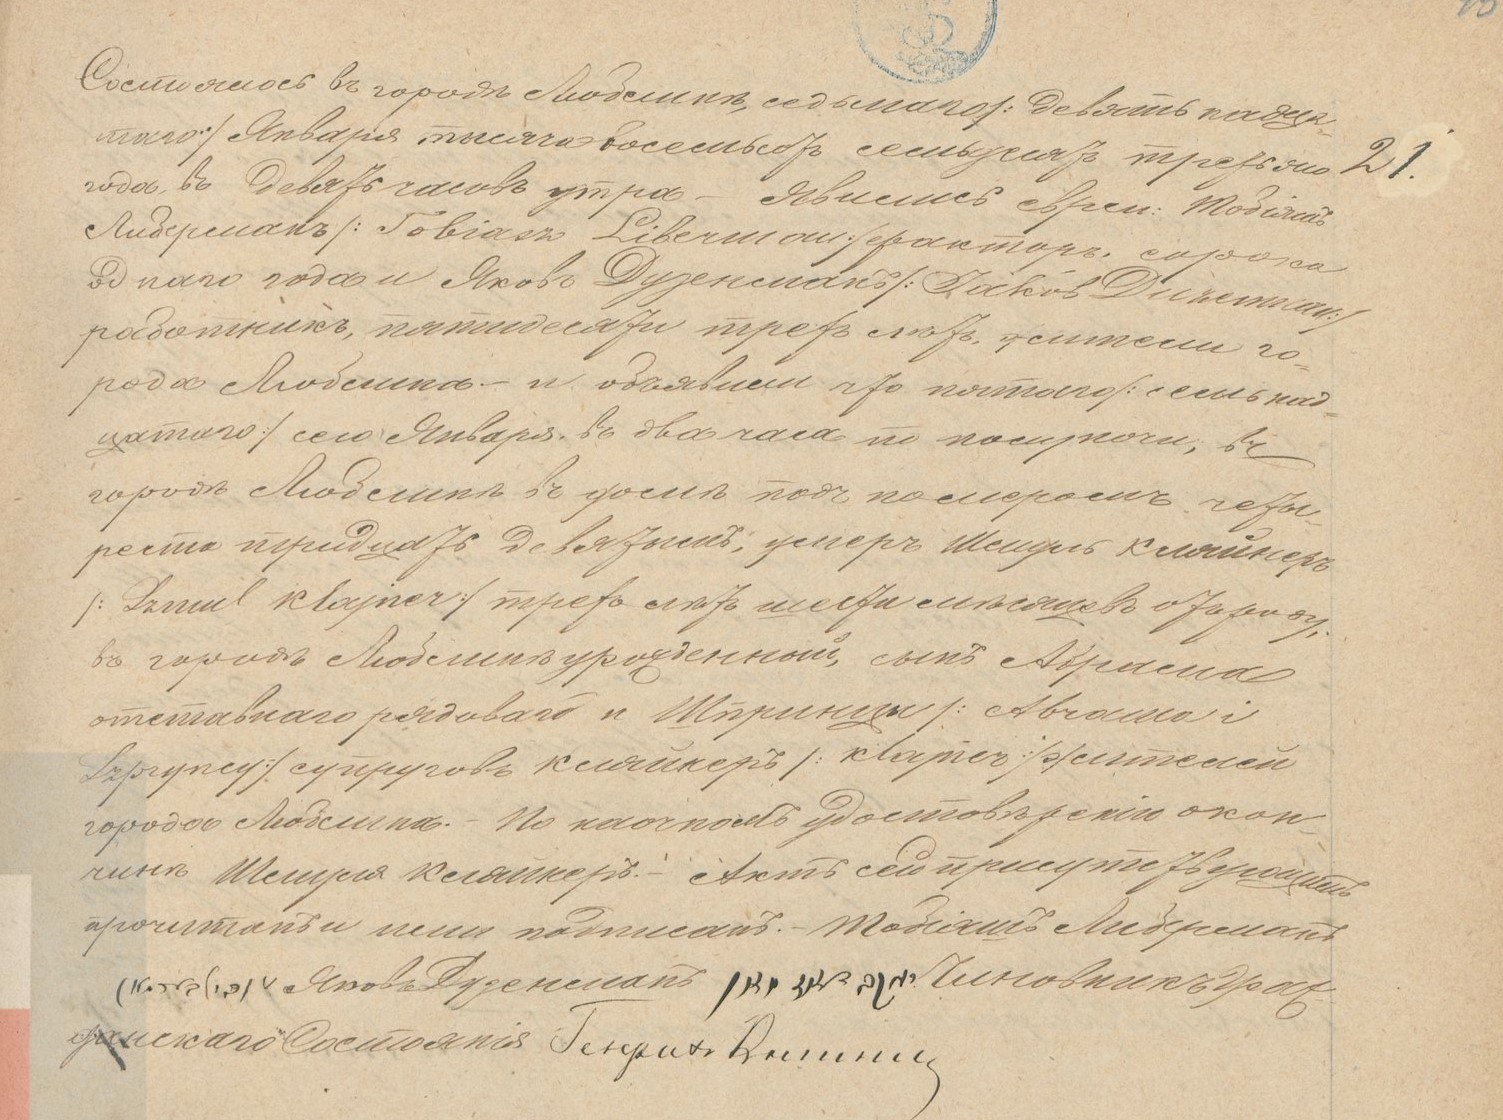 Состоялось въ городѣ Люблинѣ, седьмаго /: девятьнадца-
таго :/ Января тысяча восемьсотъ семьдесятъ третьяго
21.
года, въ девять часовъ утра – явились Евреи: Тобіяшъ
Либерманъ /: Tobiasz Liberman :/ факторъ, сорока
одного года и Яковъ Дуженманъ /: Jakób Dużenman :/
работникъ, пятидесяти трехъ лѣтъ, жители го-
рода Люблина – и объявили что пятаго /: семьнад-
цатаго :/ сего Января, въ два часа по полуночи, въ
городѣ Люблинѣ въ домѣ подъ номеромъ четы-
реста тридцать девятымъ, умеръ Шмуль Кляйнеръ
/: Szmul Klajner :/ трехъ лѣтъ шести мѣсяцевъ отъ роду,
въ городѣ Люблинѣ урожденный, сынъ Абрама
отставнаго рядоваго и Шпринцы /: Abrama i
Szpryncy :/ супруговъ Кляйнеръ /: Klajner :/ жителей
города Люблина. – По наочномъ удостовѣреніи о кон-
чинѣ Шмуля Кляйнеръ. – Актъ сей присутствующимъ
прочитанъ и ими подписанъ. – Тобіяшъ Либерманъ
Яковъ Дуженманъ Чиновникъ Граж-
данскаго Состоянія Генрихъ